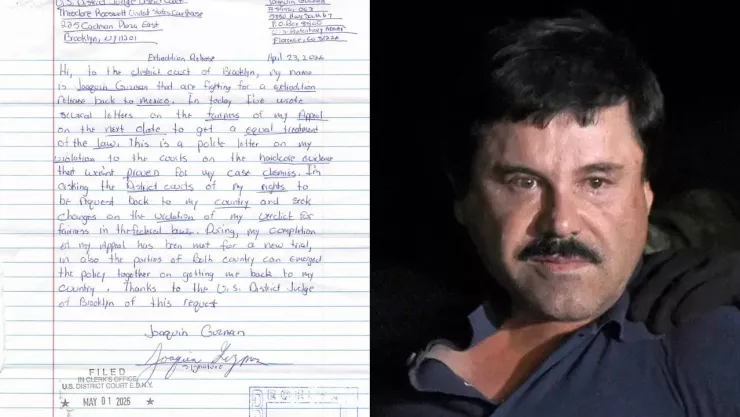 U.S. District Judge District Court
Theodore Roosevelt United States Courthouse
225 Cadman Plaza East
Brooklyn, NY 11201
Joaquin Guzman
P.O. Box 8500
Florence, CO 81226
Extradition Release
April 23, 2026
Hi, to the district court of Brooklyn, my name
is Joaquin Guzman that are fighting for a extradition
release back to mexico. In today I've wrote
several letters on the fairness of my Appeal
on the next date to get a equal treatment
of the law. This is a polite letter on my
violation to the courts on the hardcore evidence
that wasn't proven for my case dismiss. I'm
asking the District courts of my rights to
be request back to my country and seek
changes on the violation of my verdict for
fairness in the federal laws. During, my completion
of my Appeal has been met for a new trial,
in also the parties of both country can emerged
the policy together on getting me back to my
country. Thanks to the U.S. District Judge
of Brooklyn of this request
Joaquin Guzman
Joaquin Guzman
Signature
FILED
IN CLERK'S OFFICE
U.S. DISTRICT COURT E.D.N.Y.
★ MAY 01 2026 ★